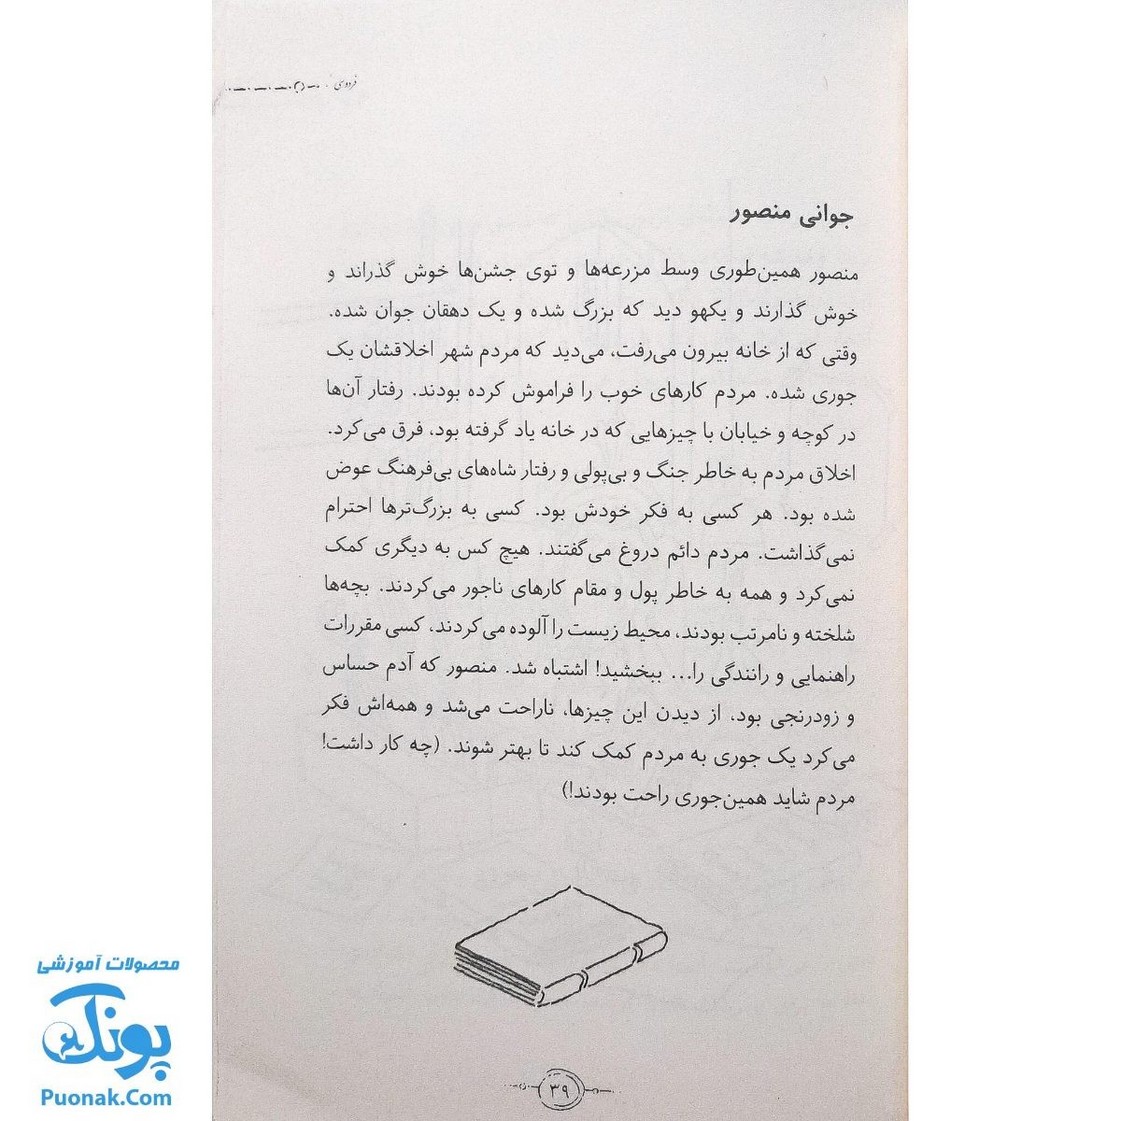 فردوسی
جوانی منصور
منصور همین‌طوری وسط مزرعه‌ها و توی جشن‌ها خوش گذراند و
خوش گذارند و یکهو دید که بزرگ شده و یک دهقان جوان شده.
وقتی که از خانه بیرون می‌رفت، می‌دید که مردم شهر اخلاقشان یک
جوری شده. مردم کارهای خوب را فراموش کرده بودند. رفتار آن‌ها
در کوچه و خیابان با چیزهایی که در خانه یاد گرفته بود، فرق می‌کرد.
اخلاق مردم به خاطر جنگ و بی‌پولی و رفتار شاه‌های بی‌فرهنگ عوض
شده بود. هر کسی به فکر خودش بود. کسی به بزرگ‌ترها احترام
نمی‌گذاشت. مردم دائم دروغ می‌گفتند. هیچ کس به دیگری کمک
نمی‌کرد و همه به خاطر پول و مقام کارهای ناجور می‌کردند. بچه‌ها
شلخته و نامرتب بودند، محیط زیست را آلوده می‌کردند، کسی مقررات
راهنمایی و رانندگی را... ببخشید! اشتباه شد. منصور که آدم حساس
و زودرنجی بود، از دیدن این چیزها، ناراحت می‌شد و همه‌اش فکر
می‌کرد یک جوری به مردم کمک کند تا بهتر شوند. (چه کار داشت!
مردم شاید همین‌جوری راحت بودند!)
۳۹
محصولات آموزشی
پونک
Puonak.Com